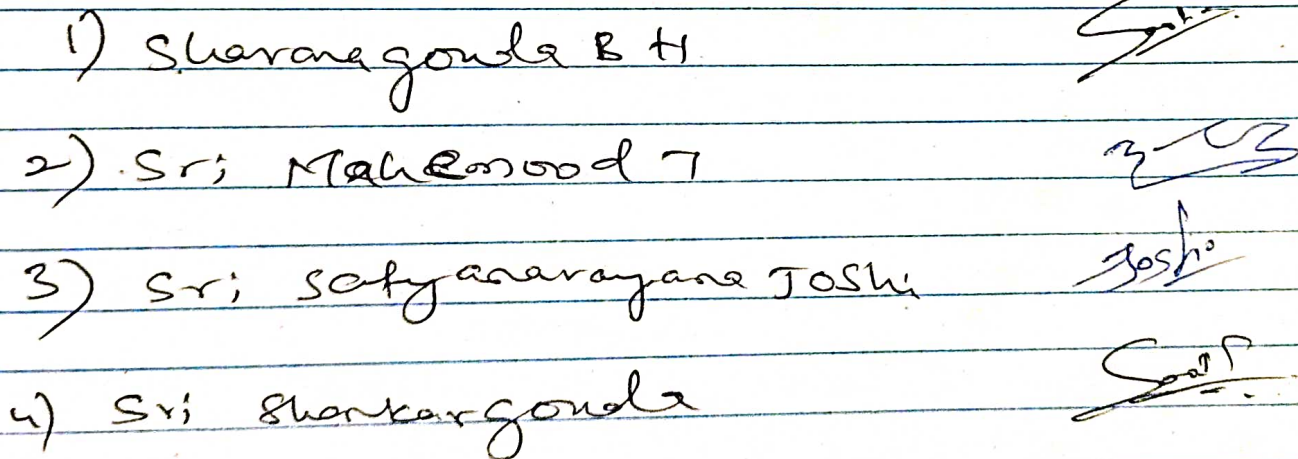 1) Sharanagouda B H
2) Sri Mahemood T
3) Sri Satyanarayana Joshi Joshi
4) Sri Shankargouda